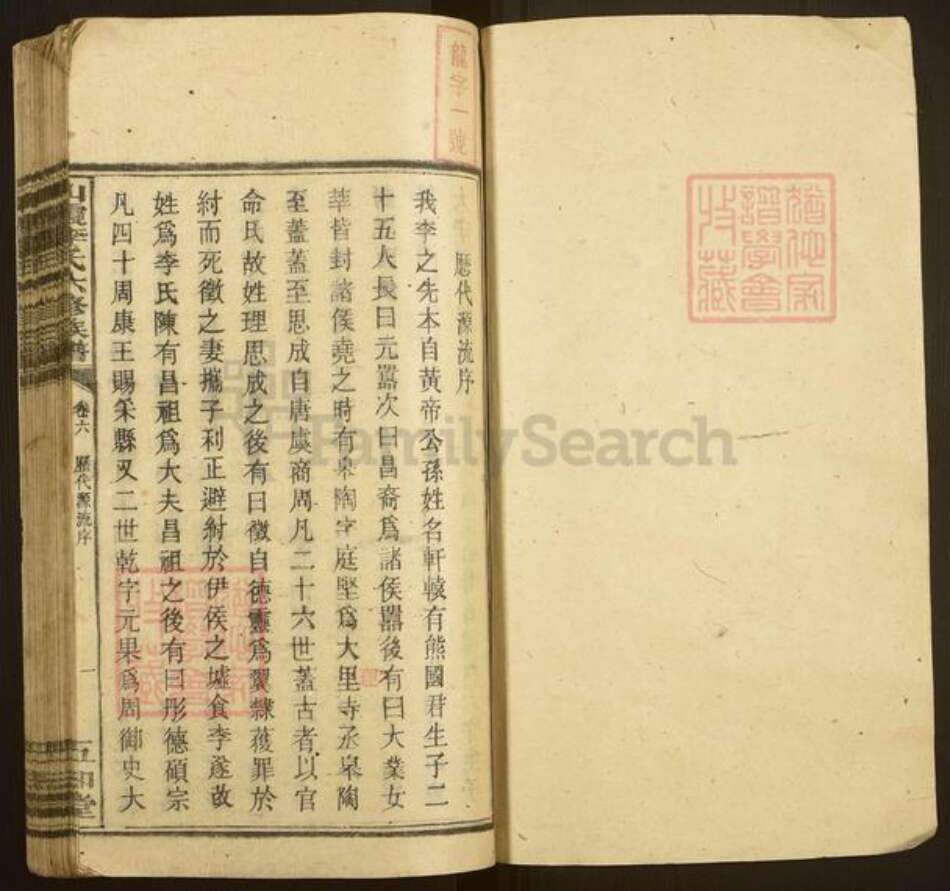 龍字一號
歷代源流序
我李之先本自黃帝公孫姓名軒轅有熊國君生子二
十五人長曰元囂次曰昌裔爲諸侯囂後有曰大業女
華皆封諸侯堯之時有臯陶字庭堅爲大里寺丞臯陶
至蓋蓋至思成自唐虞商周凡二十六世蓋古者以官
命氏故姓理思成之後有曰徵自德靈爲翼隸蒦罪於
紂而死徵之妻攜子利正避紂於伊侯之墟食李遂故
姓爲李氏陳有昌祖爲大夫昌祖之後有曰彤德碩宗
凡四十周康王賜采縣又二世乾字元果爲周御史大
李氏六修族譜
卷六
歷代源流序
一
堂
譜學會
收藏
FamilySearch